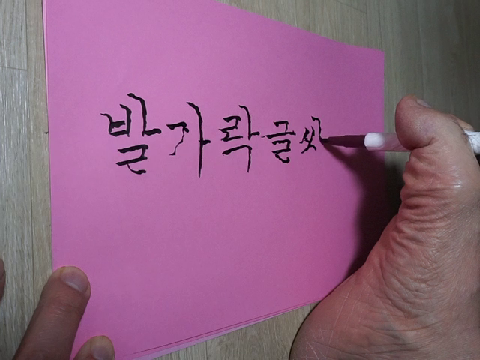 발가락글씨